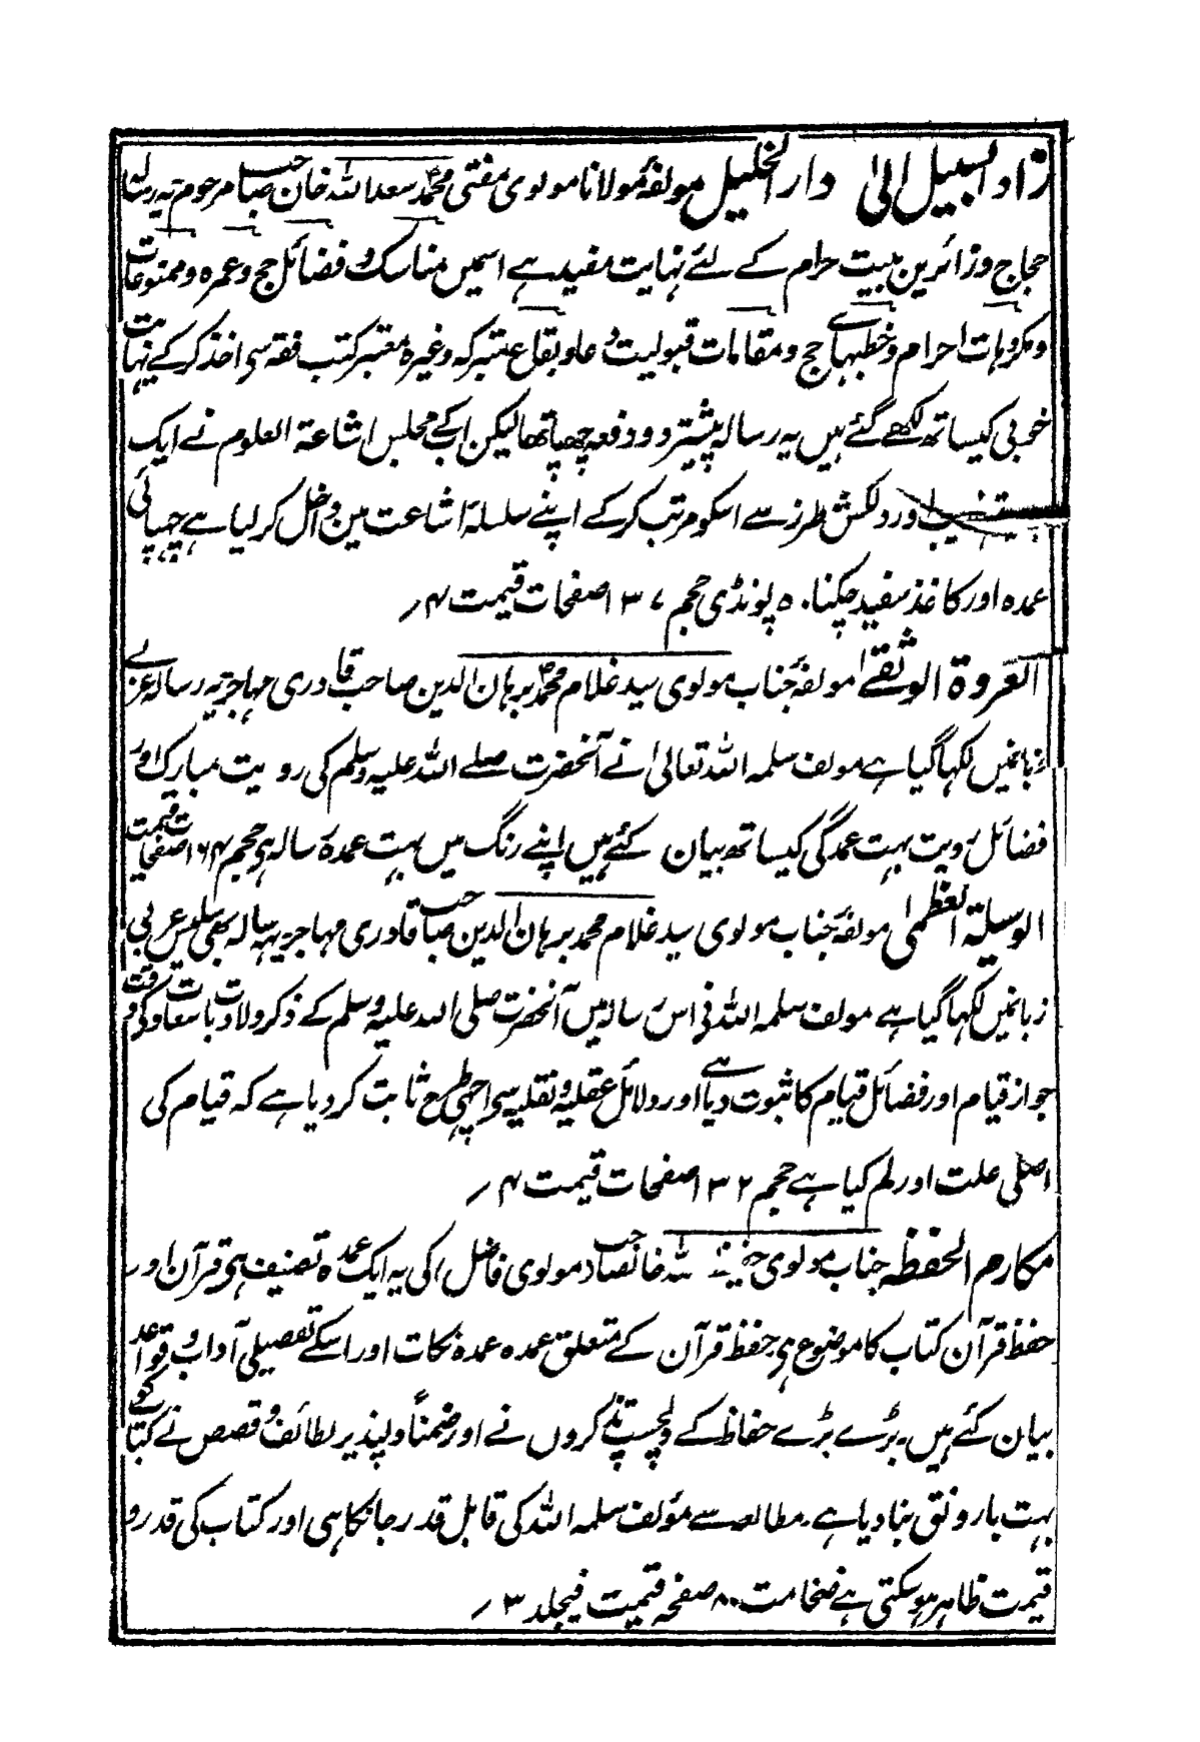 زاد السبیل الیٰ دار الخلیل مولفہٗ مولانا مولوی مفتی محمدؐ سعد اللہ خان صاحب مرحوم یہ رسالہ
حجاج و زائرین بیت حرام کے لئے نہایت مفید ہے اسمیں مناسک و فضائل حج و عمرہ و ممنوعات
و مکروہات احرام و خطبہائے حج و مقامات قبولیت دعا و بقاع متبرکہ وغیرہ معتبر کتب فقہ سے اخذ کر کے نہایت
خوبی کیساتھ لکھے گئے ہیں یہ رسالہ پیشتر دو دفعہ چھپا تھا لیکن ابکے مجلس اشاعۃ العلوم نے ایک
اور دلکش طرز سے اسکو مرتب کر کے اپنے سلسلۂ اشاعت مین داخل کر لیا ہے چھپائی
عمدہ اور کاغذ سفید چکنا ۵۰ پونڈی حجم ۱۳۷ صفحات قیمت ۴؍
العروۃ الوثقےٰ مولفہٗ جناب مولوی سید غلام محمدؐ برہان الدین صاحب قادری مہاجر یہ رسالہ عربی
زبانمیں لکہا گیا ہے مولف سلمہ اللہ تعالیٰ نے آنحضرت صلے اللہ علیہ وسلم کی رویت مبارک اور
فضائل رویت بہت عمدگی کیساتھ بیان کئے ہیں اپنے رنگ میں بہت عمدہ رسالہ ہے حجم ۱۶۴ صفحات قیمت
الوسیلۃ العظمیٰ مولفہٗ جناب مولوی سید غلام محمد برہان الدین صاحب قادری مہاجر یہ رسالہ بھی سلیس عربی
زبانمیں لکہا گیا ہے مولف سلمہ اللہ نے اس رسالہ میں آنحضرت صلی اللہ علیہ وسلم کے ذکر ولادت باسعادت کے وقت
جواز قیام اور فضائل قیام کا ثبوت دیا ہے اور دلائل عقلیہ و نقلیہ سے اچھی طرح ثابت کر دیا ہے کہ قیام کی
اصلی علت اور لم کیا ہے حجم ۱۳۲ صفحات قیمت ۴؍
مکارم الحفظہ جناب مولوی اللہ خانصاحب (مولوی فاضل) کی یہ ایک عمدہ تصنیف ہے قرآن اور
حفظ قرآن کتاب کا موضوع ہے حفظ قرآن کے متعلق عمدہ عمدہ نکات اور اسکے تفصیلی آداب و قواعد
بیان کئے ہیں۔ بڑے بڑے حفاظ کے دلچسپ تذکروں نے اور ضمناً دلپذیر لطائف و قصص نے کتاب کو
بہت بارونق بنا دیا ہے۔ مطالعہ سے مؤلف سلمہ اللہ کی قابل قدر جانکاہی اور کتاب کی قدر و
قیمت ظاہر ہو سکتی ہے ضخامت ۸۰ صفحہ قیمت فیجلد ۳؍